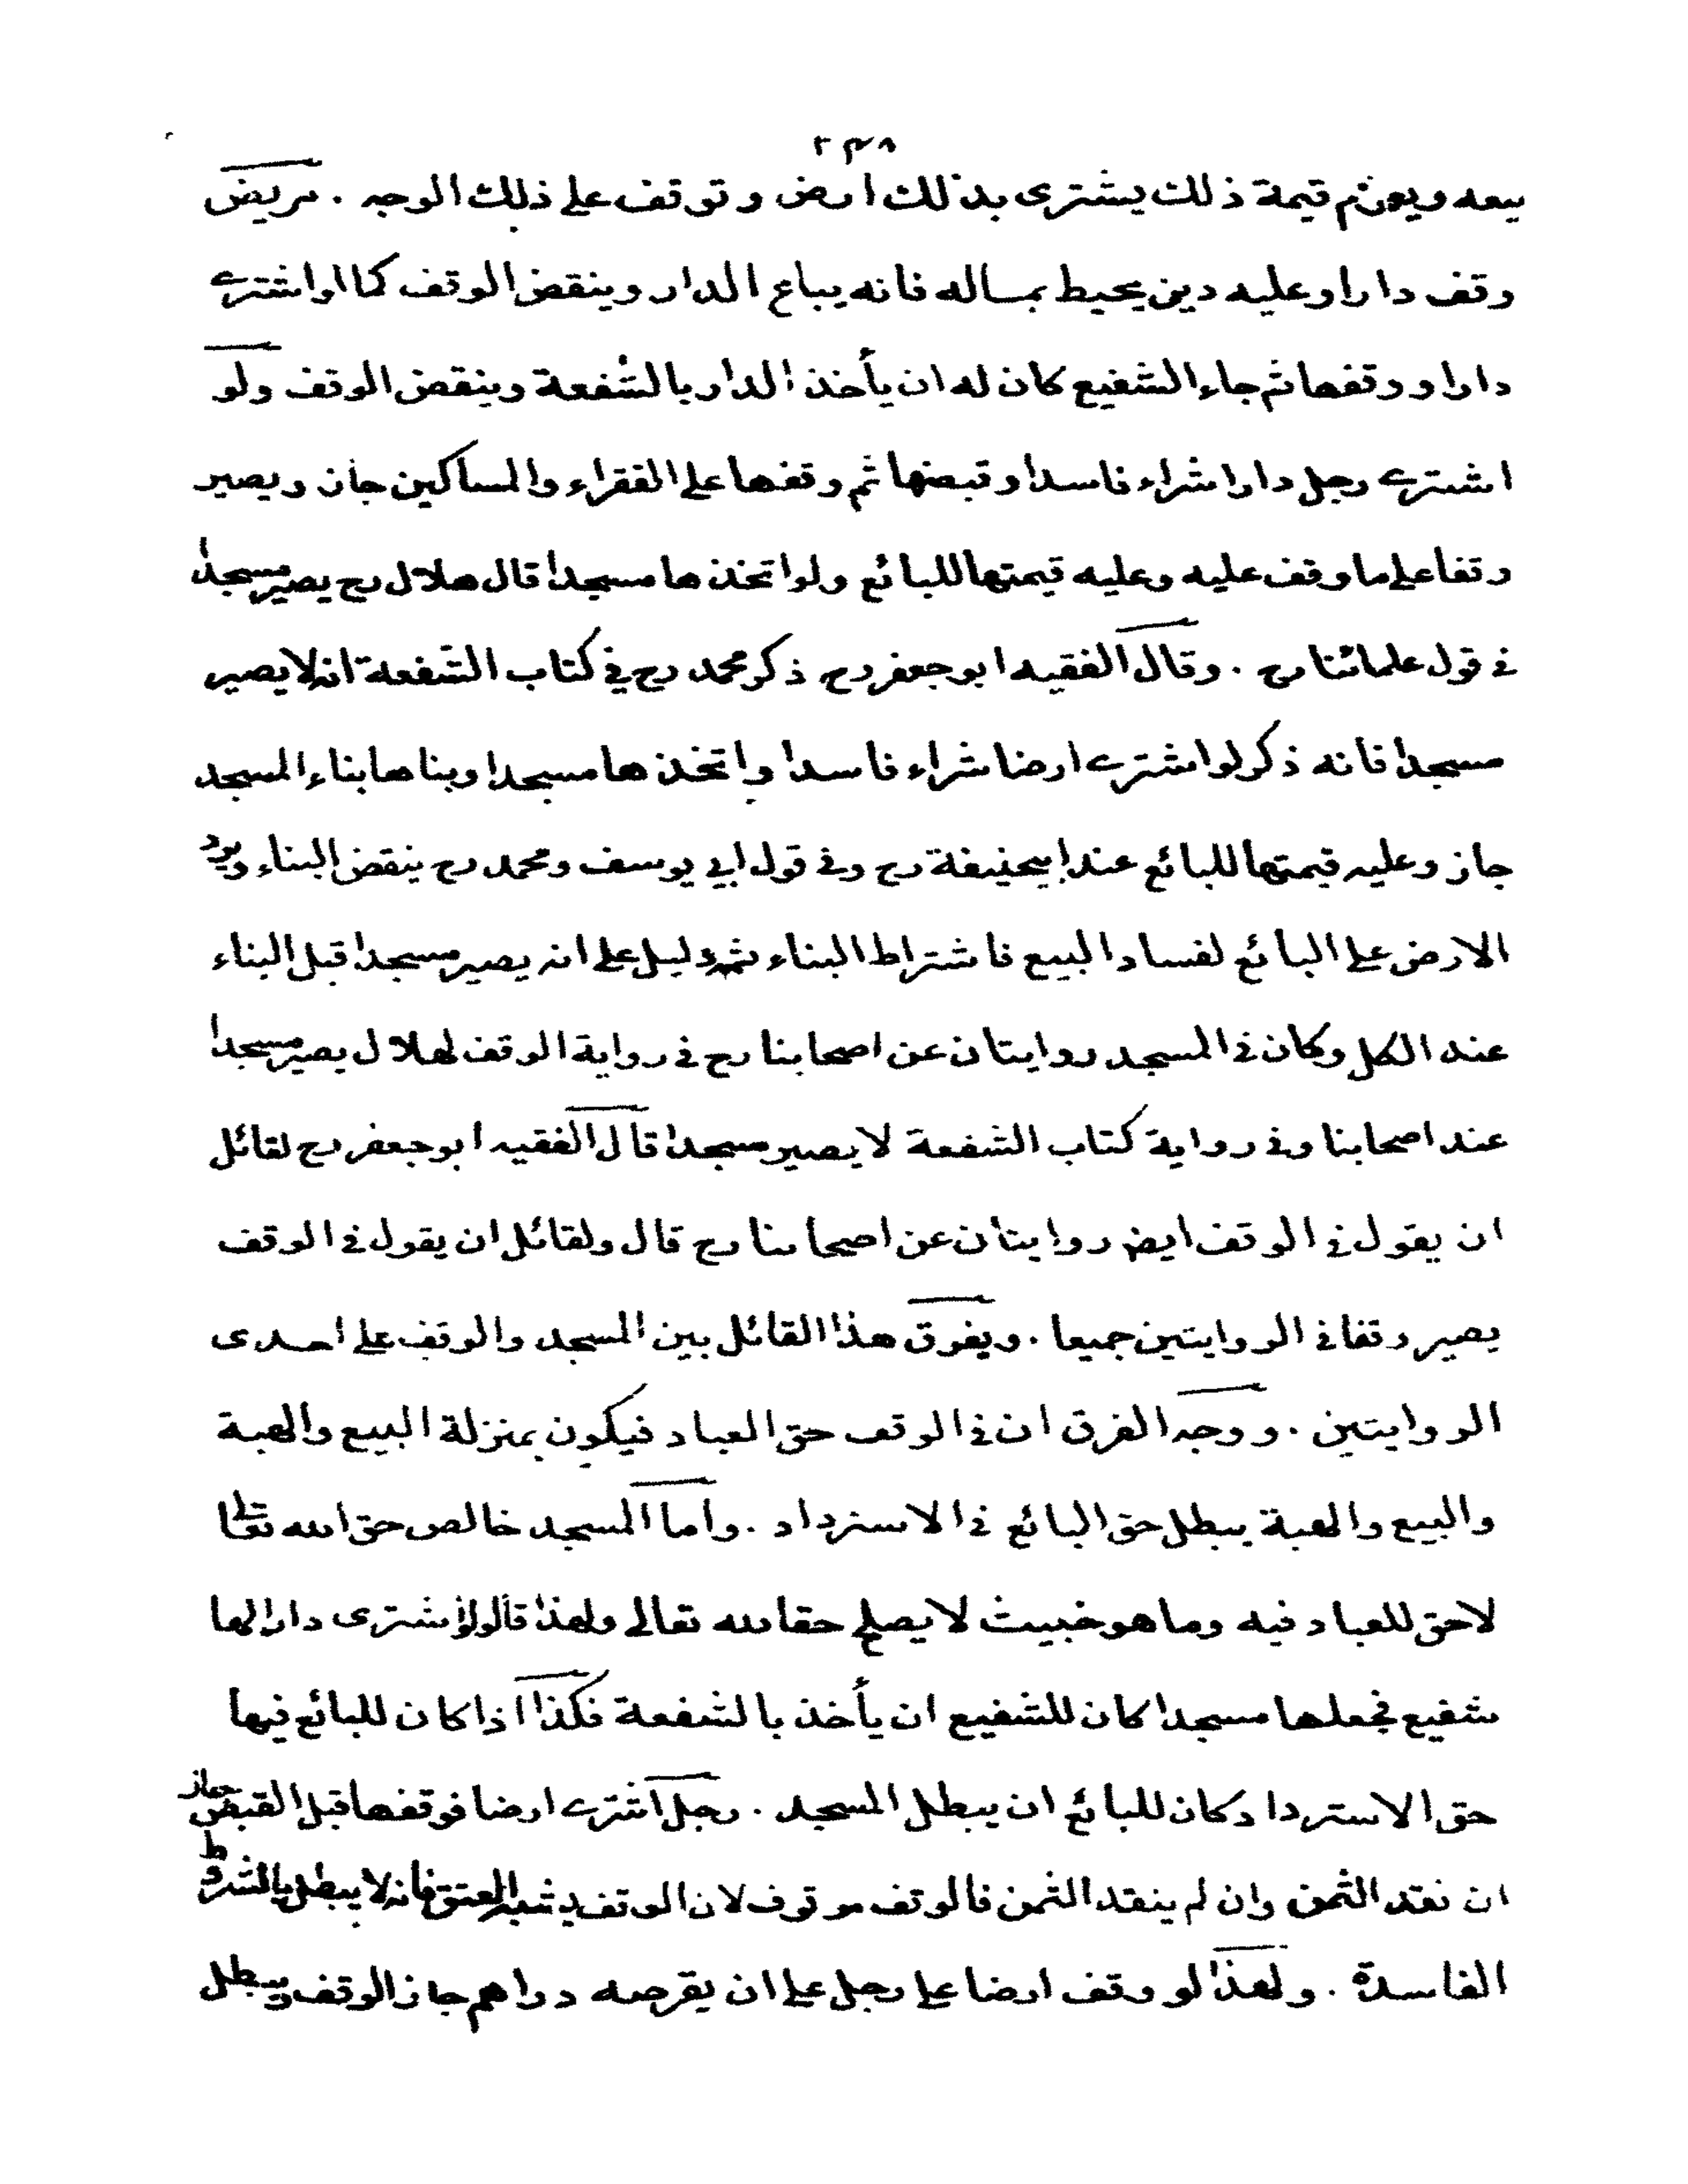 ٢٣٨
بيعه ويغرم قيمة ذلك يشترى بذلك ارض وتوقف على ذلك الوجه . مريض
وقف دارا وعليه دين يحيط بماله فانه يباع الدار وينقض الوقف كما لو اشترى
دارا ووقفها ثم جاء الشفيع كان له ان يأخذ الدار بالشفعة وينقض الوقف ولو
اشترى رجل دارا شراء فاسدا وقبضها ثم وقفها على الفقراء والمساكين جاز ويصير
وقفا على ما وقف عليه وعليه قيمتها للبائع ولو اتخذ ها مسجدا قال هلال رح يصير مسجدا
في قول علمائنا رح . وقال الفقيه ابو جعفر رح ذكر محمد رح في كتاب الشفعة انه لا يصير
مسجدا فانه ذكر لو اشترى ارضا شراء فاسدا واتخذ ها مسجدا وبناها بناء المسجد
جاز وعليه قيمتها للبائع عند ابيحنيفة رح وفي قول ابي يوسف ومحمد رح ينقض البناء ويرد
الارض على البائع لفساد البيع فاشتراط البناء دليل على انه يصير مسجدا قبل البناء
عند الكل وكان في المسجد روايتان عن اصحابنا رح في رواية الوقف لهلال يصير مسجدا
عند اصحابنا وفي رواية كتاب الشفعة لا يصير مسجدا قال الفقيه ابو جعفر رح لقائل
ان يقول في الوقف ايض روايتان عن اصحابنا رح قال ولقائل ان يقول في الوقف
يصير وقفا في الروايتين جميعا . ويفرق هذا القائل بين المسجد والوقف على احدى
الروايتين . ووجه الفرق ان في الوقف حق العباد فيكون بمنزلة البيع والهبة
والبيع والهبة يبطل حق البائع في الاسترداد . واما المسجد خالص حق الله تعالى
لا حق للعباد فيه وما هو خبيث لا يصلح حقا لله تعالى ولهذا قالوا لو اشترى دارا لها
شفيع فجعلها مسجدا كان للشفيع ان يأخذ بالشفعة فكذا اذا كان للبائع فيها
حق الاسترداد كان للبائع ان يبطل المسجد . رجل اشترى ارضا فوقفها قبل القبض جاز
ان نقد الثمن وان لم ينقد الثمن فالوقف موقوف لان الوقف يشبه العتق فانه لا يبطل بالشروط
الفاسدة . ولهذا لو وقف ارضا على رجل على ان يقرضه دراهم جاز الوقف ويبطل